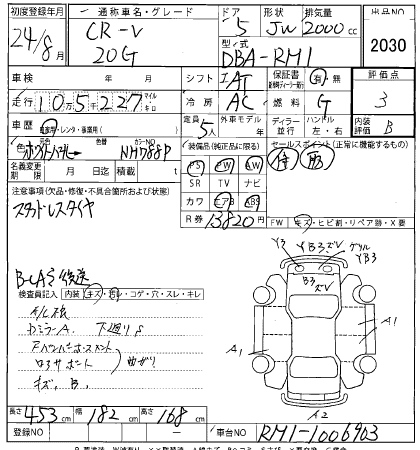 初度登録年月 通称車名・グレード ドア 形状 排気量 出品NO
24/8月 CR-V 5 JW 2000 cc 2030
20G 型式 DBA-RM1
車検 年 月 シフト IAT 保証書 有・無 評価点
走行 105227 マイル キロ 冷房 AC 燃料 G 3
車歴 自家用・レンタ・事業用 定員 5人 外車モデル 年 ディーラー 並行 ハンドル 左・右 内装評価 B
色 ホワイトパール 色替 カラーNO NH788P 装備品(純正品に限る) セールスポイント(正常に機能するもの)
名義変更期限 月 日迄 積載 t PS PW AW
注意事項(欠品・修復・不具合箇所および状態) SR TV ナビ
スタッドレスタイヤ カワ エアB ABS
R券 13820円 FW キズ・ヒビ割・リペア跡・X要
Y3 YB3ズV グリル YB3
B3ズV
B-CAS後送
検査員記入 内装 キズ・汚レ・コゲ・穴・スレ・キレ
Dミラー A. 下廻りS
キズ, B.
A1 A1
A2
長さ 453 cm 幅 182 cm 高さ 168 cm
登録NO 車台NO RM1-1006903